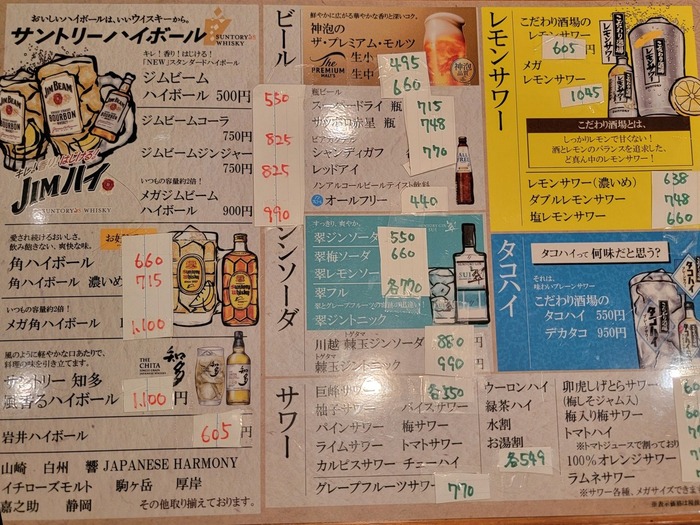 おいしいハイボールは、いいウイスキーから。
サントリーハイボール
SUNTORY
WHISKY
JIM BEAM
BOURBON
キレ!香り!はじける!
「NEW」スタンダードハイボール
ジムビーム
ハイボール 500円
550
ジムビームコーラ
750円
825
ジムビームジンジャー
750円
825
いつもの容量約2倍!
メガジムビーム
ハイボール 900円
990
キレ、香り、はじける。
JIMハイ。
SUNTORY WHISKY
愛され続けるおいしさ。
飲み飽きない、爽快な味。
角ハイボール 660
角ハイボール 濃いめ 715
いつもの容量約2倍!
メガ角ハイボール 1,100
風のように軽やかな口あたりで、
料理の味を引き立てます。
THE
CHITA
知多
サントリー 知多
風香るハイボール 1,100 円
岩井ハイボール 605 円
山崎 白州 響 JAPANESE HARMONY
イチローズモルト 駒ヶ岳 厚岸
嘉之助 静岡 その他取り揃えております。
ビール
鮮やかに広がる華やかな香りと深いコク。
神泡の
ザ・プレミアム・モルツ
The
PREMIUM
MALT'S
生小 495
生中 660
神泡
瓶ビール
スーパードライ 瓶 715
サッポロ赤星 瓶 748
ビアカクテル
シャンディガフ 770
レッドアイ
ノンアルコールビールテイスト飲料
オールフリー 440
ジンソーダ
すっきり、爽やか。
翠ジンソーダ 550
翠梅ソーダ 660
翠レモンソーダ
翠フル 各770
翠ジントニック
翠
トゲタマ
川越 棘玉ジンソーダ 880 円
トゲタマ
棘玉ジントニック 990 円
サワー
巨峰サワー 各550
柚子サワー バイスサワー
パインサワー 梅サワー
ライムサワー トマトサワー
カルピスサワー チューハイ
グレープフルーツサワー 770
ウーロンハイ
緑茶ハイ
水割
お湯割
各549
レモンサワー
こだわり酒場の
レモンサワー
605 円
メガ
レモンサワー
1045
こだわり酒場とは、
しっかりレモンで甘くない!
酒とレモンのバランスを追求した、
ど真ん中のレモンサワー!
レモンサワー(濃いめ) 638
ダブルレモンサワー 748
塩レモンサワー 660
タコハイ
タコハイって何味だと思う?
それは、
味わいプレーンサワー
こだわり酒場の
タコハイ 550円
デカタコ 950円
タコハイ
卯虎しげとらサワー
(梅しそジャム入)
梅入り梅サワー
トマトハイ
※トマトジュースで割っており
100%オレンジサワー
ラムネサワー
※サワー各種、メガサイズできます